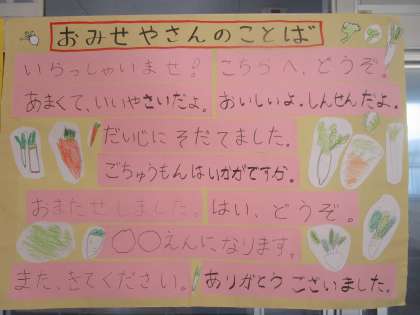 おみせやさんのことば
いらっしゃいませ! こちらへ、どうぞ。
あまくて、いいやさいだよ。 おいしいよ。しんせんだよ。
だいじにそだてました。
ごちゅうもんはいかがですか。
おまたせしました。 はい、どうぞ。
〇〇えんになります。
また、きてください。 ありがとうございました。